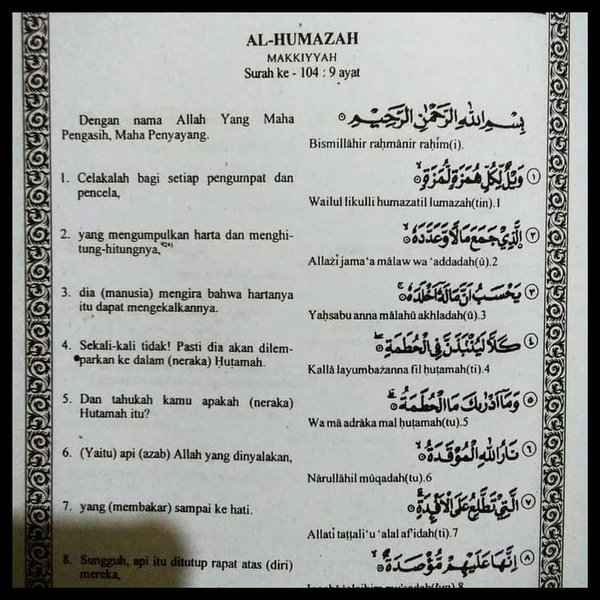 AL-HUMAZAH
MAKKIYYAH
Surah ke - 104 : 9 ayat
Dengan nama Allah Yang Maha
Pengasih, Maha Penyayang.
بِسْمِ اللّٰهِ الرَّحْمٰنِ الرَّحِيْمِ
Bismillāhir raḥmānir raḥīm(i).
1. Celakalah bagi setiap pengumpat dan
pencela,
وَيْلٌ لِّكُلِّ هُمَزَةٍ لُّمَزَةٍۙ ۝١
Wailul likulli humazatil lumazah(tin).1
2. yang mengumpulkan harta dan menghi-
tung-hitungnya,
ۨالَّذِيْ جَمَعَ مَالًا وَّعَدَّدَهٗۙ ۝٢
Allażī jama‘a mālaw wa ‘addadah(ū).2
3. dia (manusia) mengira bahwa hartanya
itu dapat mengekalkannya.
يَحْسَبُ اَنَّ مَالَهٗٓ اَخْلَدَهٗۚ ۝٣
Yaḥsabu anna mālahū akhladah(ū).3
4. Sekali-kali tidak! Pasti dia akan dilem-
parkan ke dalam (neraka) Ḥuṭamah.
كَلَّا لَيُنْۢبَذَنَّ فِى الْحُطَمَةِۖ ۝٤
Kallā layumbażanna fil ḥuṭamah(ti).4
5. Dan tahukah kamu apakah (neraka)
Hutamah itu?
وَمَآ اَدْرٰىكَ مَا الْحُطَمَةُۗ ۝٥
Wa mā adrāka mal ḥuṭamah(tu).5
6. (Yaitu) api (azab) Allah yang dinyalakan,
نَارُ اللّٰهِ الْمُوْقَدَةُۙ ۝٦
Nārullāhil mūqadah(tu).6
7. yang (membakar) sampai ke hati.
الَّتِيْ تَطَّلِعُ عَلَى الْاَفْـِٕدَةِۗ ۝٧
Allatī taṭṭali‘u ‘alal af'idah(ti).7
8. Sungguh, api itu ditutup rapat atas (diri)
mereka,
اِنَّهَا عَلَيْهِمْ مُّؤْصَدَةٌۙ ۝٨